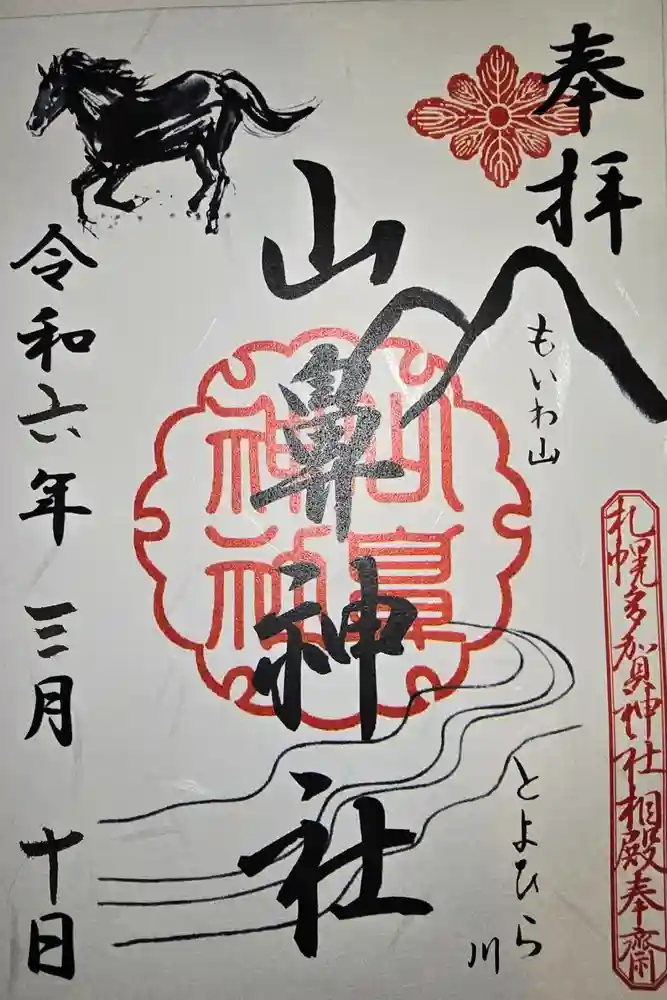 奉拝
もいわ山
札幌多賀神社相殿奉齋
山鼻神社
山鼻神社
とよひら川
令和六年 三月 十日